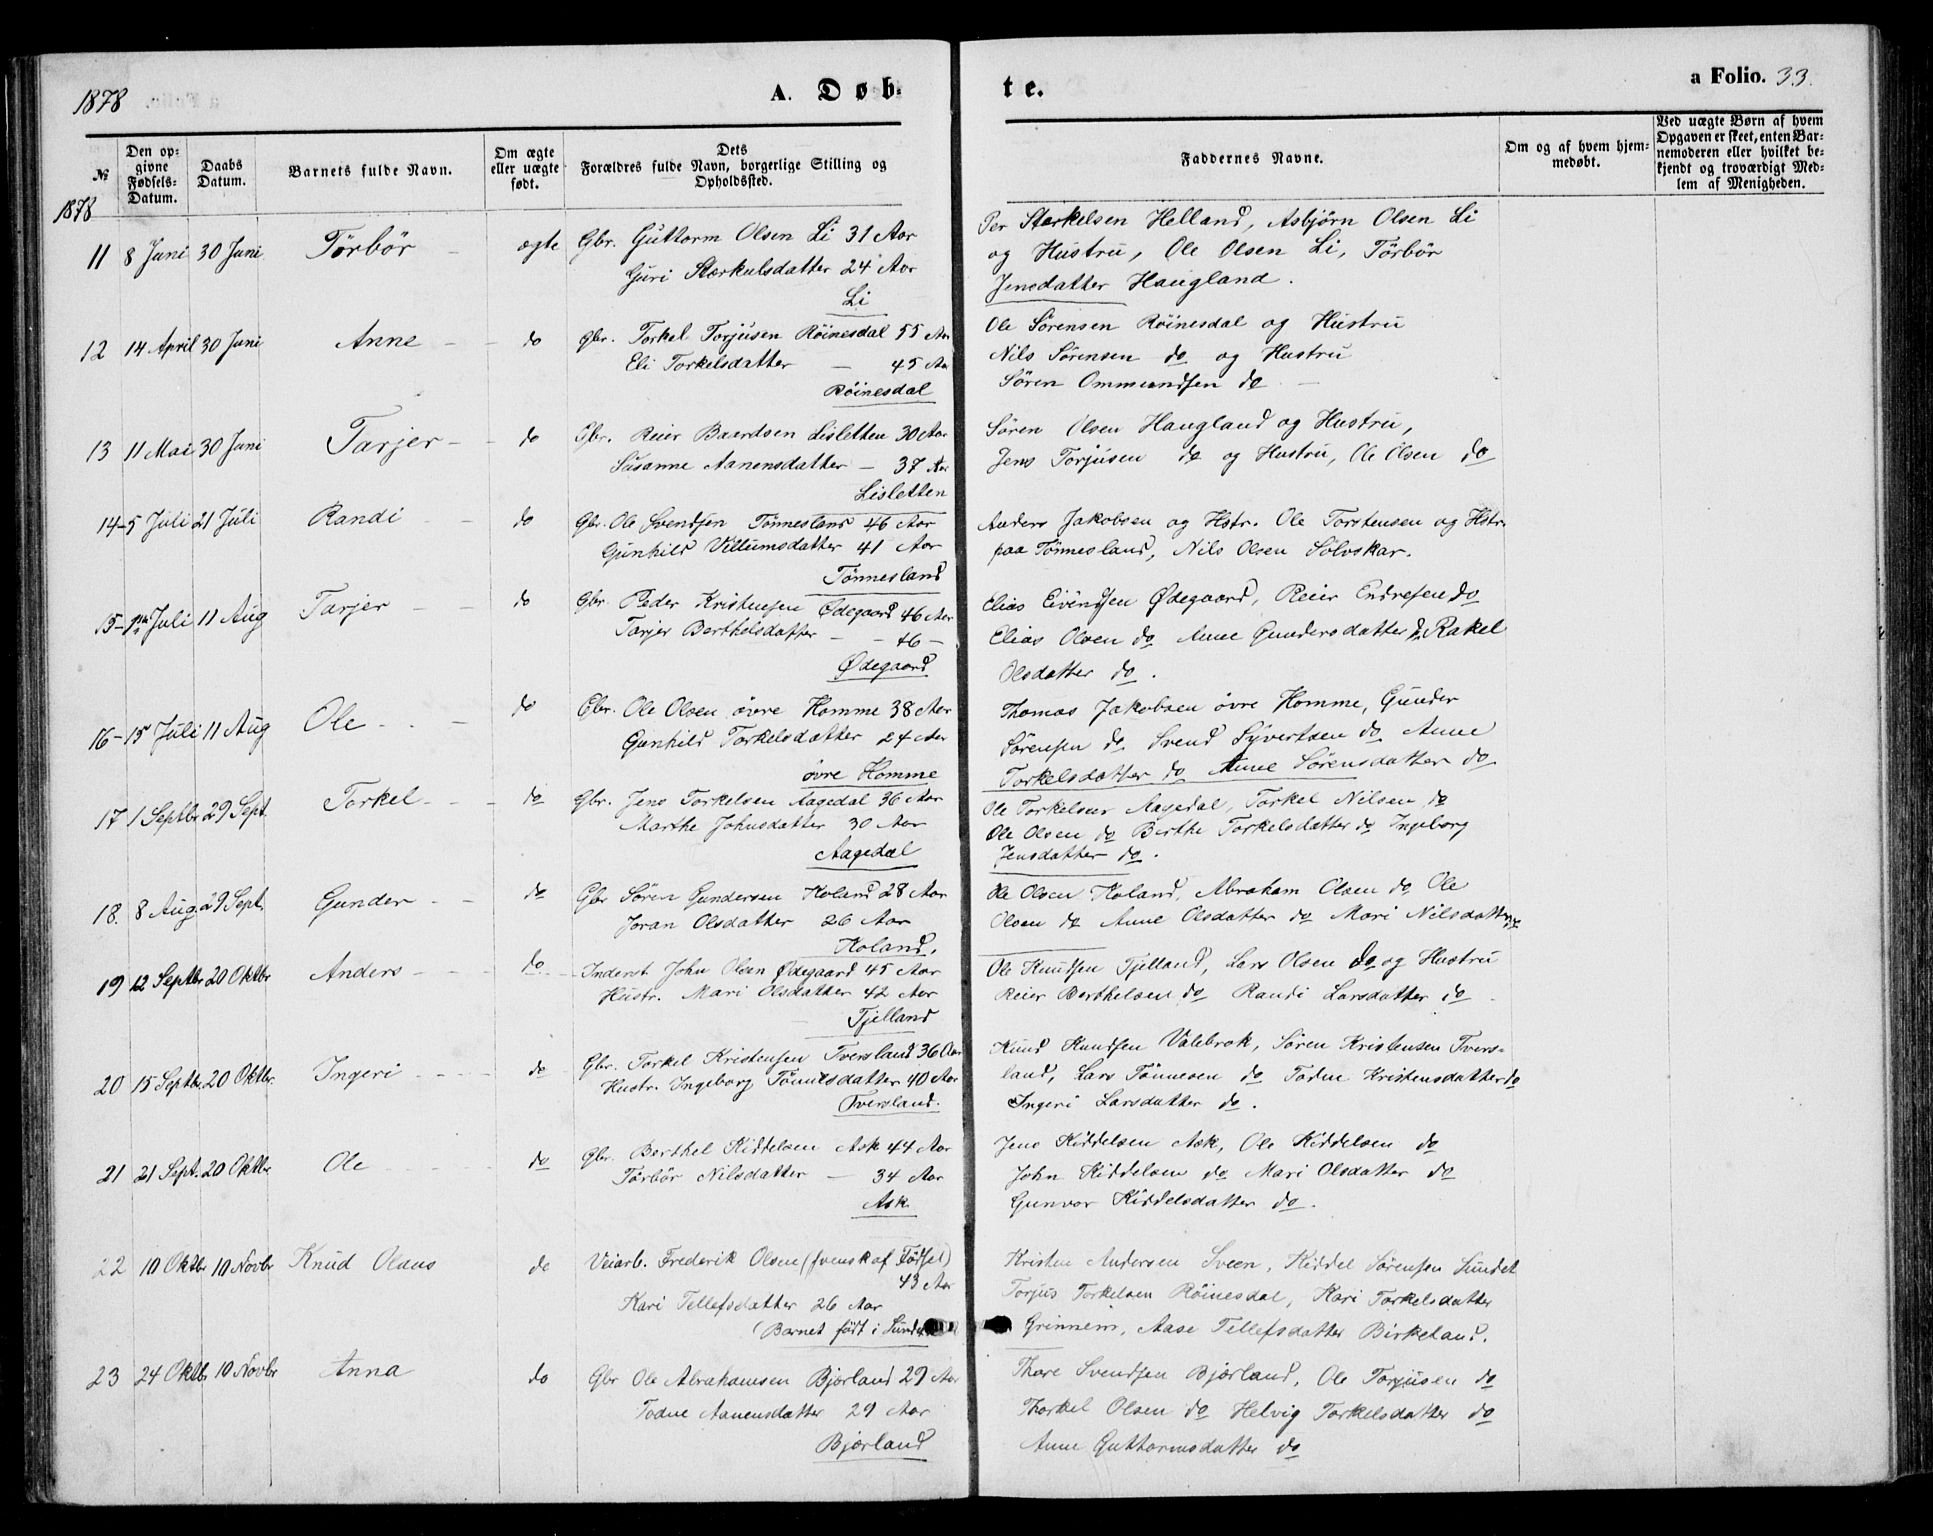 1878
A. Døb-
te.
a Folio. 33.
№
Den op-
givne
Fødsels-
Datum.
Daabs
Datum.
Barnets fulde Navn.
Om ægte
eller uægte
født.
Dets
Forældres fulde Navn, borgerlige Stilling og
Opholdssted.
Faddernes Navne.
Om og af hvem hjem-
medøbt.
Ved uægte Børn af hvem
Opgaven er skeet, enten Bar-
nemoderen eller hvilket be-
kjendt og troværdigt Med-
lem af Menigheden.
1878
11 8 Juni 30 Juni Törbör - ægte Gbr. Guttorm Olsen Li 31 Aar
Guri Stærkulsdatter 24 Aar
Li
Per Stærkelsen Helland, Asbjörn Olsen Li
og Hustru, Ole Olsen Li, Törbör
Jensdatter Haugland.
12 14 April 30 Juni Anne - - do Gbr. Torkel Torjusen Röinesdal 55 Aar
Eli Torkelsdatter - 45 Aar
Röinesdal
Ole Sörensen Röinesdal og Hustru
Nils Sörensen do og Hustru
Sören Ommundsen do
13 11 Mai 30 Juni Tarjer - - do Gbr. Reier Baardsen Lisletten 30 Aar
Susanne Aanensdatter - 37 Aar
Lisletten
Sören Olsen Haugland og Hustru,
Jens Torjusen do og Hustru, Ole Olsen do
14 - 5 Juli 21 Juli Randi - - do Gbr. Ole Svendsen Tönnesland 46 Aar
Gunhild Villumsdatter 41 Aar
Tönnesland
Anders Jakobsen og Hstr. Ole Torstensen og Hstr.
paa Tönnesland, Nils Olsen Sölvskar.
15 - Juli 11 Aug Tarjer - - do Gbr. Peder Kristensen Ødegaard 46 Aar
Tarjer Berthelsdatter - - 46 -
Ødegaard
Elias Eivendsen Ødegaard, Reier Endresen do
Elias Olsen do Anne Gundersdatter do Rakel
Olsdatter do.
16 - 15 Juli 11 Aug Ole - - - do Gbr. Ole Olsen övre Homme 38 Aar
Gunhild Torkelsdatter 24 Aar
övre Homme
Thomas Jakobsen övre Homme, Gunder
Sörensen do Svend Syvertsen do Anne
Torkelsdatter do Anne Sörensdatter do
17 1 Septbr 29 Sept. Torkel - - - do Gbr. Jens Torkelsen Aagedal 36 Aar
Marthe Johnsdatter 30 Aar
Aagedal
Ole Torkelsen Aagedal, Torkel Nilsen do
Ole Olsen do Berthe Torkelsdatter do Ingeborg
Jensdatter do.
18. 8 Aug 29 Sept. Gunder - - do Gbr Sören Gundersen Koland 28 Aar
Joran Olsdatter 26 Aar
Koland.
Ole Olsen Koland, Abraham Olsen do Ole
Olsen do Anne Olsdatter do Mari Nilsdatter do
19 12 Septbr 20 Oktbr Anders - - - do Inderst John Olsen Ødegaard 45 Aar
Hustr. Mari Olsdatter 42 Aar
Tjelland
Ole Knudsen Tjelland, Lars Olsen do og Hustru
Reier Berthelsen do Randi Larsdatter do
20 15 Septbr. 20 Oktbr. Ingeri - - - - do Gbr. Torkel Kristensen Tversland 36 Aar
Hustr. Ingeborg Tönnesdatter 40 Aar
Tversland.
Knud Knudsen Valebrok, Sören Kristensen Tvers-
land, Lars Tönnesen do Todne Kristensdatter do
Ingeri Larsdatter do.
21 21 Sept. 20 Oktbr Ole - - - do Gbr. Berthel Kiddelsen Ask 44 Aar
Törbör Nilsdatter - 34 Aar
Ask
Jens Kiddelsen Ask, Ole Kiddelsen do
John Kiddelsen do Mari Olsdatter do
Gunvor Kiddelsdatter do.
22 10 Oktbr 10 Novbr Knud Olaus do Veiarb. Frederik Olsen (svensk af Födsel)
43 Aar
Kari Tellefsdatter 26 Aar
(Barnet födt i
Kristen Andersen Sveen, Kiddel Sörensen Sundet
Torjus Torkelsen Röinesdal, Kari Torkelsdatter
Grinneim, Aase Tellefsdatter Birkeland.
23 24 Oktbr 10 Novbr Anna do Gbr Ole Abrahamsen Bjorland 29 Aar
Todne Aanensdatter 29 Aar
Bjorland
Thore Svendsen Bjorland, Ole Torjusen do
Thorkel Olsen do Helvig Torkelsdatter do
Anne Guttormsdatter do